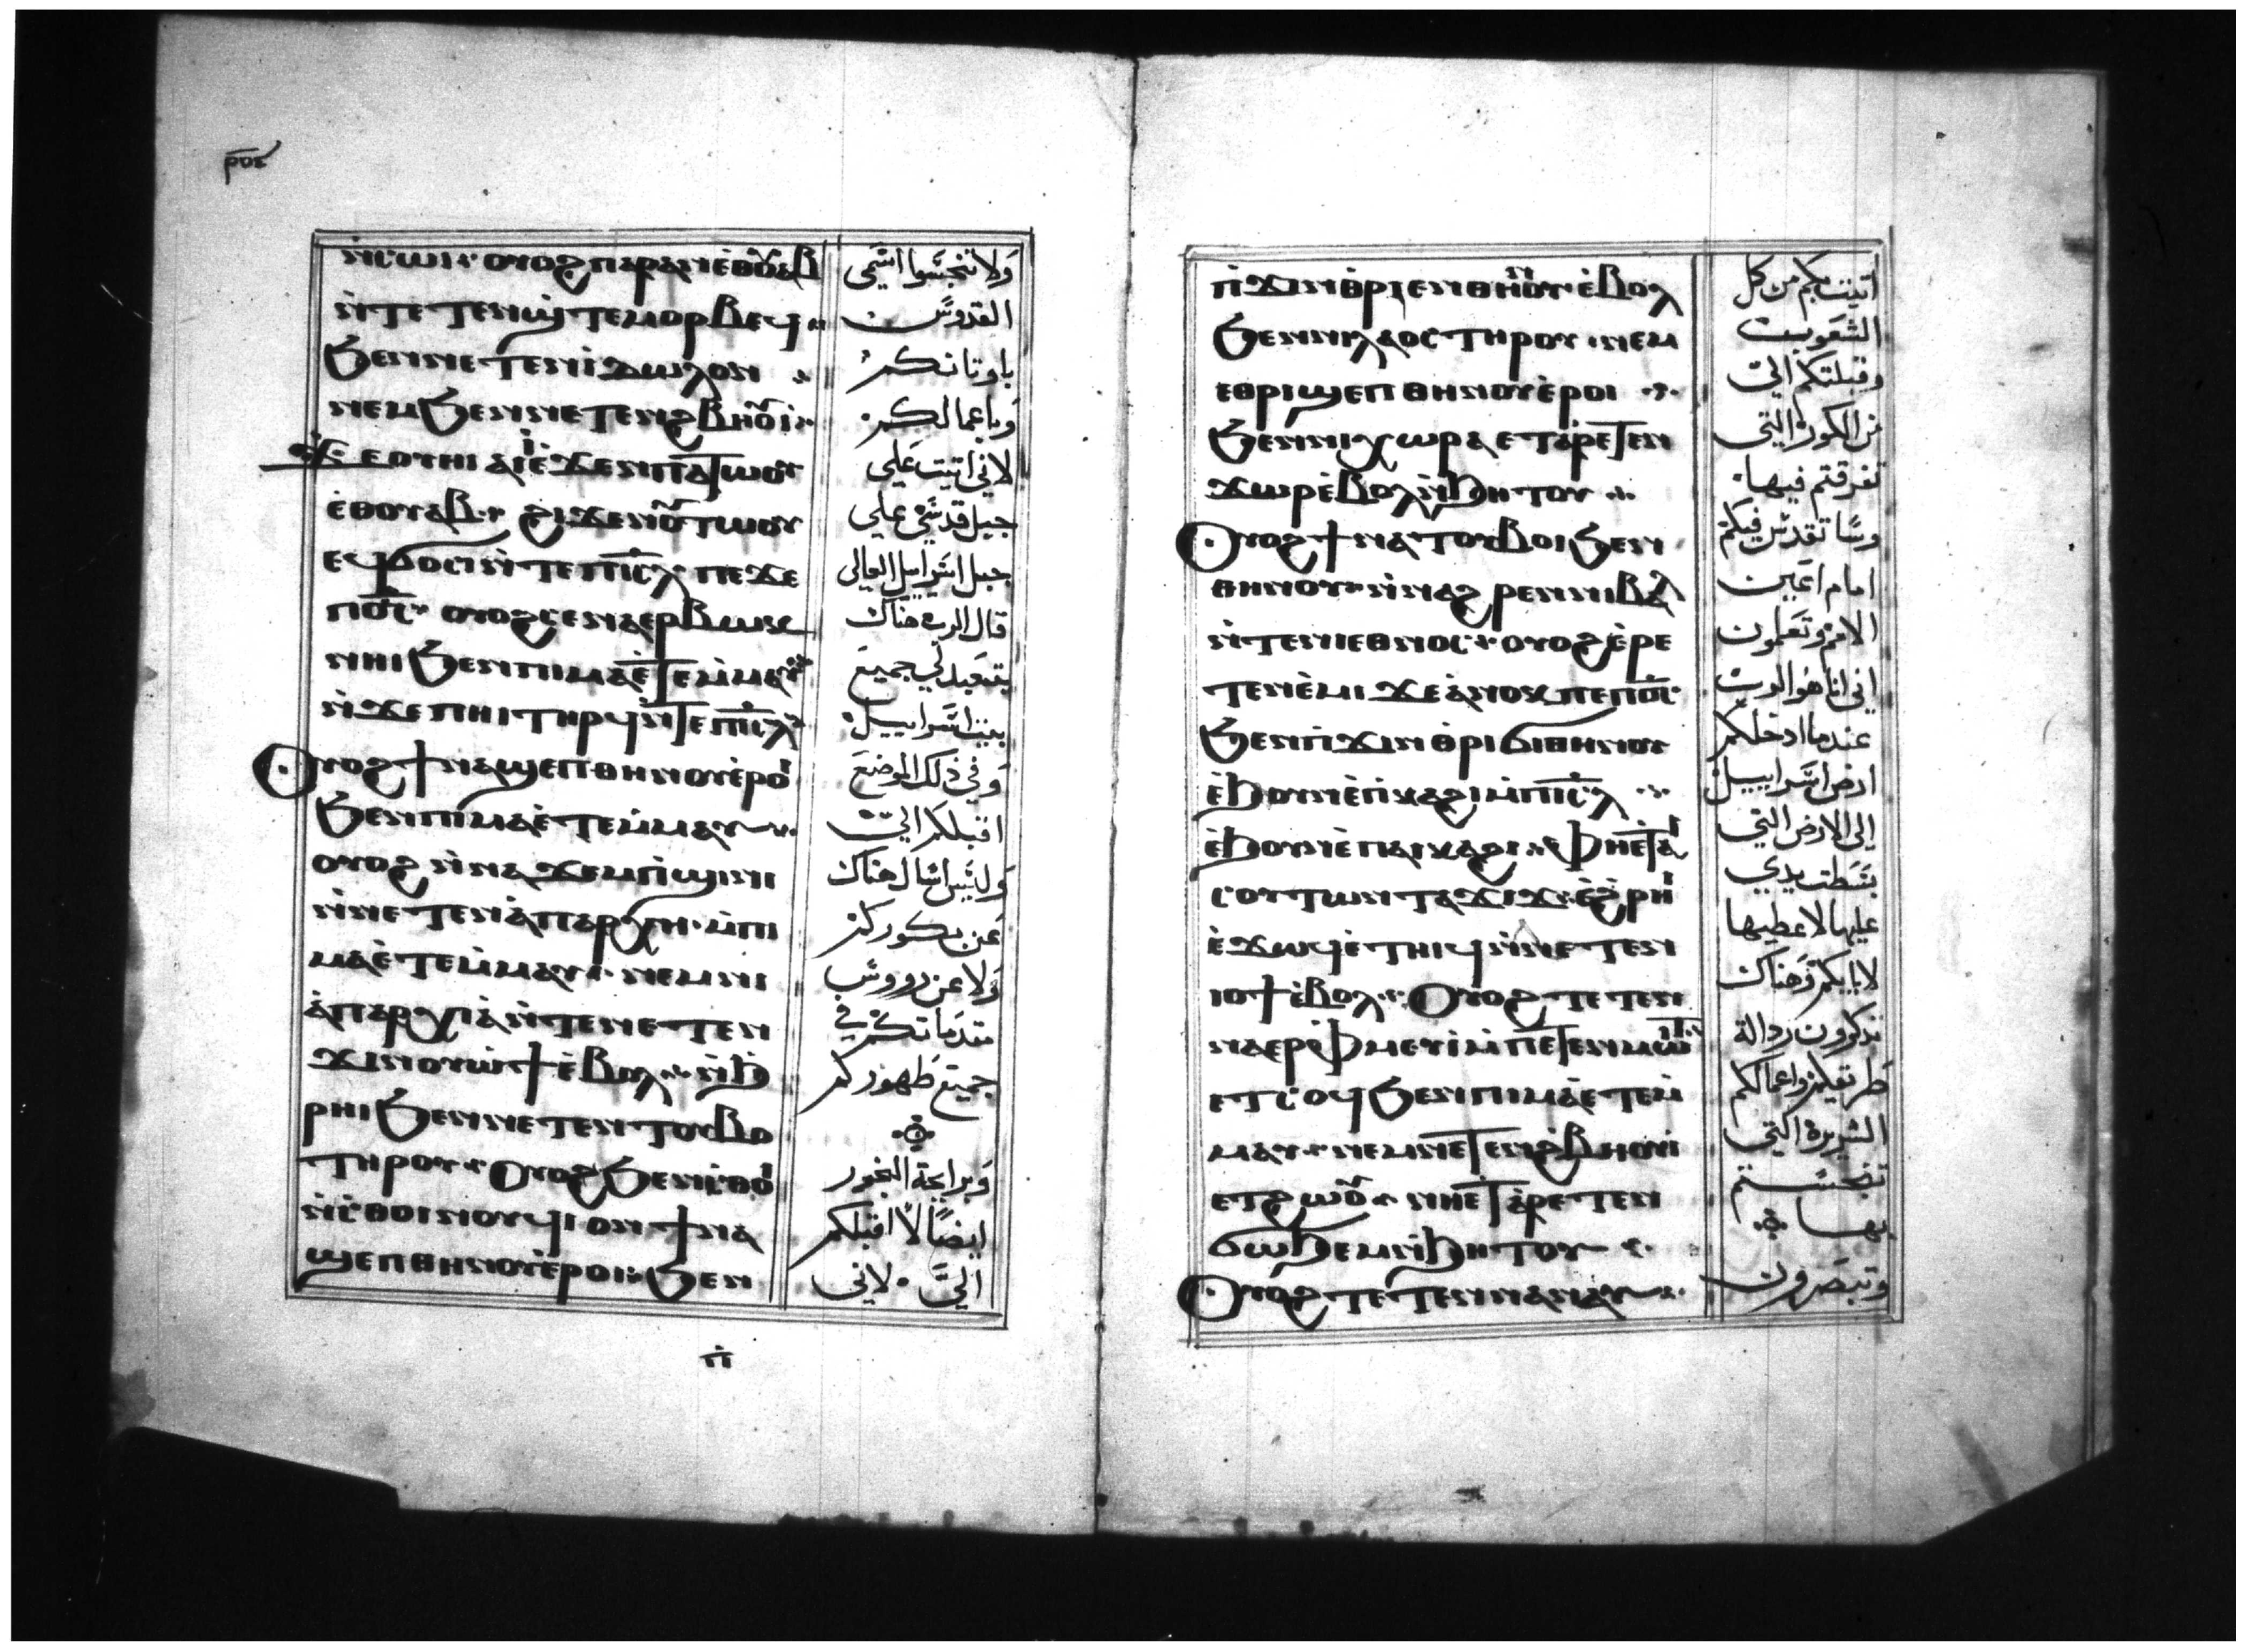 ⲛ̀ⲥⲱⲓ· ⲟⲩⲟϩ ⲡⲁⲣⲁⲛ ⲉ̀ⲑⲟⲩⲁⲃ
ⲛ̀ⲧⲉⲧⲉⲛϣ̀ⲧⲉⲙⲟⲣⲃⲉϥ
ϧⲉⲛⲛⲉⲧⲉⲛⲓ̀ⲇⲱⲗⲟⲛ
ⲛⲉⲙϧⲉⲛⲛⲉⲧⲉⲛϩⲃⲏⲟⲩⲓ̀
ϫⲉⲟⲩⲏⲓ ⲁⲓⲓ̀ⲉ̀ϫⲉⲛⲡⲁⲧⲱⲟⲩ
ⲉ̀ⲑⲟⲩⲁⲃ· ϩⲓϫⲉⲛⲟⲩⲧⲱⲟⲩ
ⲉϥϭⲟⲥⲓ ⲛ̀ⲧⲉⲡⲓⲥ̅ⲗ̅ ⲡⲉϫⲉ
ⲡⲟ̅ⲥ̅· ⲟⲩⲟϩ ⲥⲉⲛⲁⲉⲣⲃⲱⲕ
ⲛⲏⲓ ϧⲉⲛⲡⲓⲙⲁⲉ̀ⲧⲉⲙ̀ⲙⲁⲩ
ⲛ̀ϫⲉⲡⲏⲓ ⲧⲏⲣϥ ⲛ̀ⲧⲉⲡⲓⲥ̅ⲗ̅
Ⲟⲩⲟϩ ϯⲛⲁϣⲉⲡⲑⲏⲛⲟⲩ ⲉ̀ⲣⲟⲓ
ϧⲉⲛⲡⲓⲙⲁⲉ̀ⲧⲉⲙ̀ⲙⲁⲩ
ⲟⲩⲟϩ ⲛ̀ⲛⲁϫⲉⲙⲡ̀ϣⲓⲛⲓ
ⲛ̀ⲛⲉⲧⲉⲛⲁ̀ⲡⲁⲣⲭⲏ· ⲙ̀ⲡⲓ
ⲙⲁⲉ̀ⲧⲉⲙ̀ⲙⲁⲩ· ⲛⲉⲙⲛⲓ
ⲁ̀ⲡⲁⲣⲭⲓⲁ̀ ⲛ̀ⲧⲉⲛⲉⲧⲉⲛ
ϫⲓⲛⲟⲩⲱϯ ⲉ̀ⲃⲟⲗ ⲛ̀ϧ̀
ⲣⲏⲓ ϧⲉⲛⲛⲉⲧⲉⲛⲧⲟⲩⲃⲟ
ⲧⲏⲣⲟⲩ· Ⲟⲩⲟϩ ϧⲉⲛⲥ̀ⲑⲟⲓ
ⲛ̀ⲥ̀ⲑⲟⲓⲛⲟⲩϥⲓ ⲟⲛ ϯⲛⲁ
ϣⲉⲡⲑⲏⲛⲟⲩ ⲉ̀ⲣⲟⲓ· ϧⲉⲛ
ولا تنجسوا اسمي
القدوس
باوثانكم
وباعمالكم
لاني اتيت علي
جبل قدسي علي
جبل اسراييل العالي
قال الرب هناك
يتعبد لي جميع
بيت اسراييل
وفي ذلك الموضع
اقبلكم الي
وليس اسال هناك
عن بكوركم
ولا عن رووس
مقدماتكم في
جميع طهوركم
وبرايحة البخور
ايضا لا اقبلكم
الي · لاني
ⲡ̀ϫⲓⲛⲑⲣⲓⲉⲛⲑⲏⲛⲟⲩ ⲉ̀ⲃⲟⲗ
ϧⲉⲛⲛⲓⲗⲁⲟⲥ ⲧⲏⲣⲟⲩ ⲛⲉⲙ
ⲉⲑⲣⲓϣⲉⲡⲑⲏⲛⲟⲩ ⲉ̀ⲣⲟⲓ
ϧⲉⲛⲛⲓⲭⲱⲣⲁ ⲉⲧⲁⲣⲉⲧⲉⲛ
ϫⲱⲣ ⲉ̀ⲃⲟⲗ ⲛ̀ϧⲏⲧⲟⲩ
Ⲟⲩⲟϩ ϯⲛⲁⲧⲟⲩⲃⲟⲓ ϧⲉⲛ
ⲑⲏⲛⲟⲩ· ⲛ̀ⲛⲁϩⲣⲉⲛⲛⲓⲃⲁⲗ
ⲛ̀ⲧⲉⲛⲓⲉⲑⲛⲟⲥ· ⲟⲩⲟϩ ⲉ̀ⲣⲉ
ⲧⲉⲛⲉ̀ⲙⲓ ϫⲉ ⲁ̀ⲛⲟⲕ ⲡⲉ ⲡⲟ̅ⲥ̅
ϧⲉⲛⲡ̀ϫⲓⲛⲑⲣⲓϭⲓⲑⲏⲛⲟⲩ
ⲉ̀ϧⲟⲩⲛ ⲉ̀ⲡ̀ⲕⲁϩⲓ ⲙ̀ⲡⲓⲥ̅ⲗ̅
ⲉ̀ϧⲟⲩⲛ ⲉ̀ⲡⲁⲓⲕⲁϩⲓ· ⲫⲏⲉ̀ⲧⲁⲓ
ⲥⲟⲩⲧⲱⲛ ⲧⲁϫⲓϫ ⲉ̀ϩ̀ⲣⲏⲓ
ⲉ̀ϫⲱϥ ⲉ̀ⲧⲏⲓϥ ⲛ̀ⲛⲉⲧⲉⲛ
ⲓⲟϯ ⲉ̀ⲃⲟⲗ· Ⲟⲩⲟϩ ⲧⲉⲧⲉⲛ
ⲛⲁⲉⲣⲫ̀ⲙⲉⲩⲓ̀ ⲙ̀ⲡⲉⲧⲉⲛⲙⲱⲓⲧ
ⲉⲧⲥⲟϥ ϧⲉⲛⲡⲓⲙⲁⲉ̀ⲧⲉⲙ̀
ⲙⲁⲩ· ⲛⲉⲙⲛⲉⲧⲉⲛϩ̀ⲃⲏⲟⲩⲓ̀
ⲉⲧϩⲱⲟⲩ· ⲛⲏⲉ̀ⲧⲁⲣⲉⲧⲉⲛ
ϭⲱϧⲉⲙ ⲛ̀ϧⲏⲧⲟⲩ
Ⲟⲩⲟϩ ⲧⲉⲧⲉⲛⲛⲁⲛⲁⲩ
اتيت بكم من كل
الشعوب
وقبلتكم الي
من الكور التي
تفرقتم فيها
وساتقدس فيكم
امام اعين
الامم وتعلمون
اني انا هو الرب
عندما ادخلكم
ارض اسراييل
الي الارض التي
بسطت يدي
عليها لاعطيها
لابايكم وهناك
تذكرون رذالة
طريقكم واعمالكم
الشريرة التي
تنجستم
بها
وتبصرون